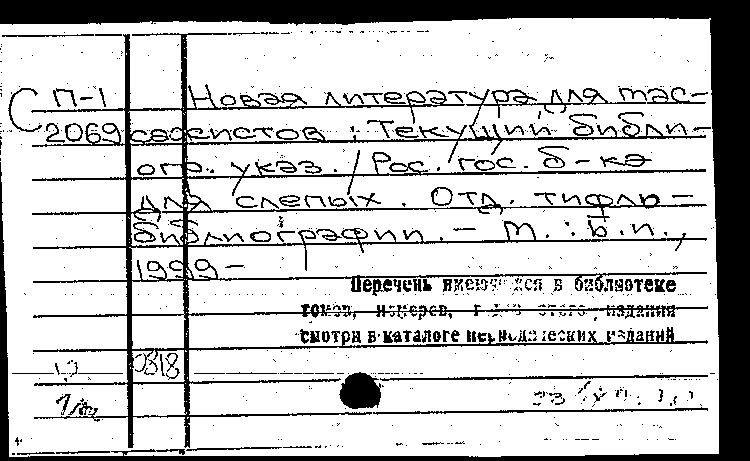 С П-1 Новая литература для мас-
2069 сажистов : Текущий библи-
огр. указ. / Рос. гос. б-ка
для слепых. Отд. тифло-
библиографии. - М. : Б.и.,
1999-
Перечень имеющихся в библиотеке
томов, номеров, этого издания
смотри в каталоге периодических изданий
0818